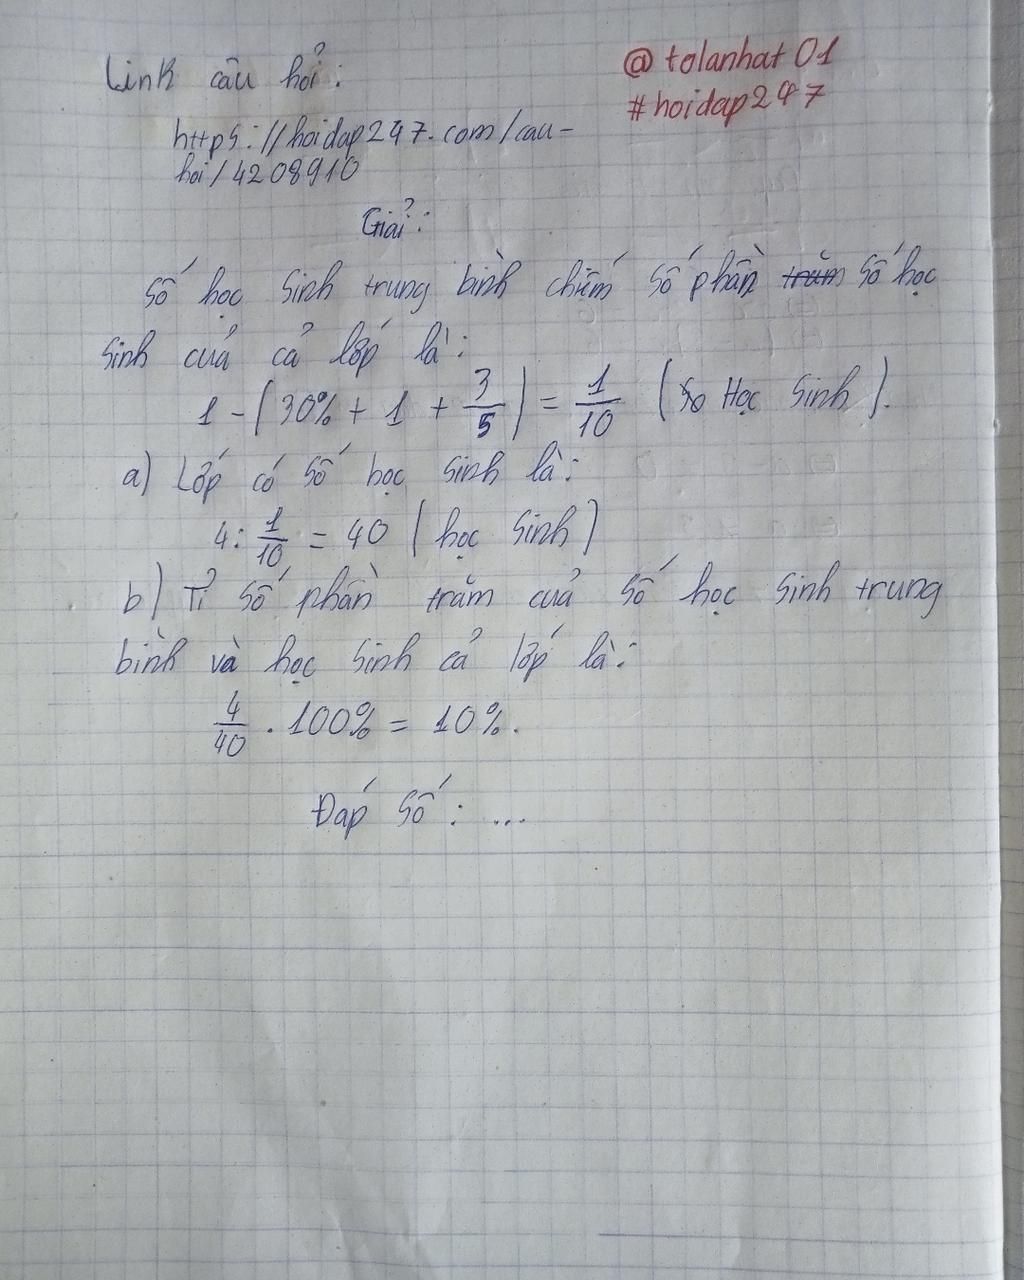 Link câu hỏi:
@tolanhat01
#hoidap247
https://hoidap247.com/cau-
hoi/4208910
Giải:
Số học sinh trung bình chiếm số phần trăm số học
sinh của cả lớp là:
1 - (30% + 1 + 3/5) = 1/10 (so Học sinh).
a) Lớp có số học sinh là:
4 : 1/10 = 40 (học sinh)
b) Tỉ số phần trăm của số học sinh trung
bình và học sinh cả lớp là:
4/40 . 100% = 10%.
Đáp số: ...